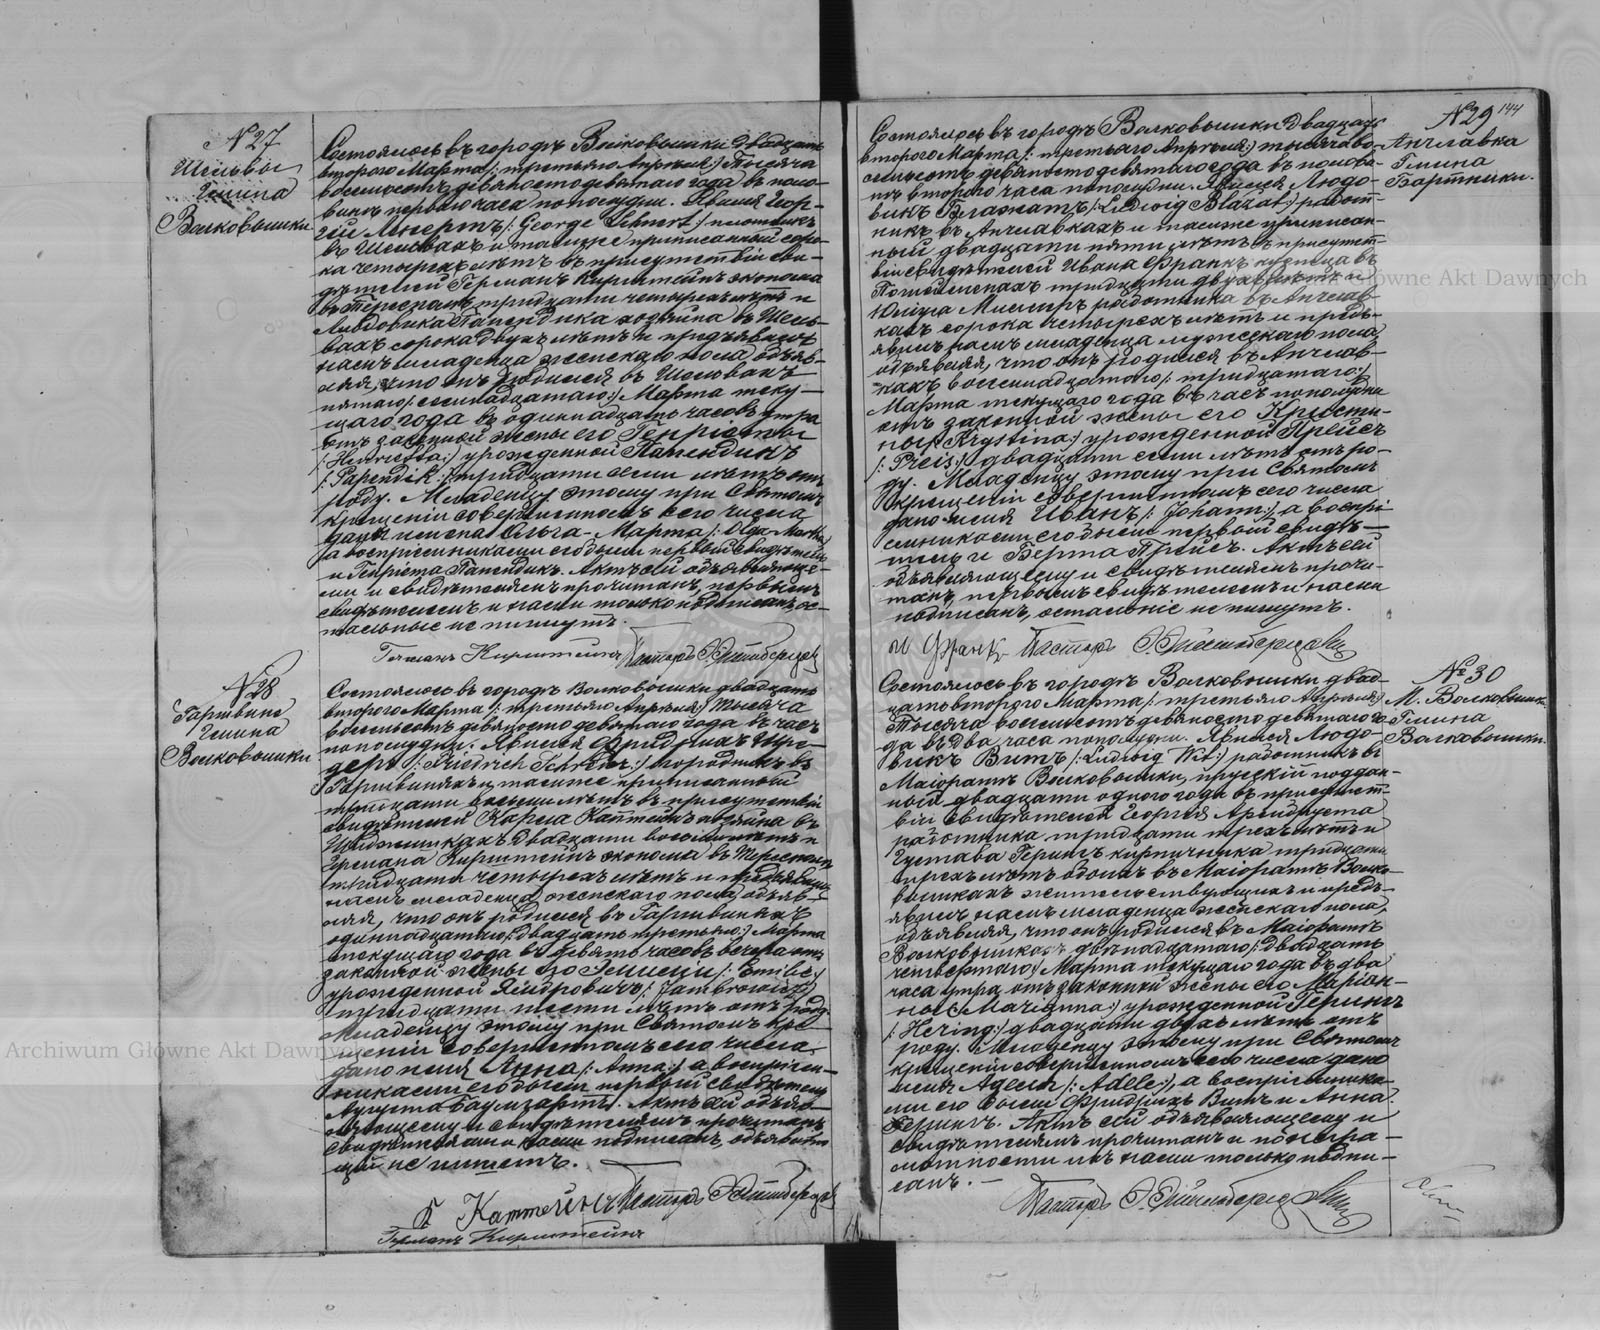 №27
Шельвы
Гмина
Волковышки
Состоялось въ городѣ Волковышки двадцать
второго Марта /: третьяго Апрѣля:/ тысяча
восемьсотъ девяносто девятаго года въ поло-
винѣ перваго часа по полудни. Явился Геор-
гій Ленертъ /: George Lehnert:/ плотникъ
въ Шельвахъ и тамже приписанный соро-
ка четырехъ лѣтъ въ присутствіи сви-
дѣтелей Германъ Кирштейнъ эконома
тридцати четырехъ лѣтъ и
Людовика Папендика хозяина въ Шель-
вахъ сорока двухъ лѣтъ и предъявилъ
намъ младенца женскаго пола, объяв-
ляя, что онъ родился въ Шельвахъ
пятаго /: семнадцатаго:/ Марта теку-
щаго года въ одиннадцать часовъ утра
отъ законной жены его Генріеты
/: Henrietta:/ урожденной Папендикъ
/: Papendik:/ тридцати семи лѣтъ отъ
роду. Младенцу этому при Святомъ
крещеніи совершенномъ сего числа
даны имена Ольга-Марта /: Olga Martha
а воспріемниками его были первый свидѣтель
и Генріета Папендикъ. Актъ сей объявляюще-
му и свидѣтелямъ прочитанъ, первымъ
свидѣтелемъ и нами только подписанъ, ос-
тальные не пишутъ.
Германъ Кирштейнъ Пасторъ
№28
Гмина
Волковышки
Состоялось въ городѣ Волковышки двадцать
второго Марта /: третьяго Апрѣля:/ тысяча
восемьсотъ девяносто девятаго года въ часъ
по полудни. Явился Фридрихъ Шре-
деръ /: Friedrich Schröder:/ огородникъ въ
и тамже приписанный
тридцати лѣтъ въ присутствіи
свидѣтелей Карла Каттейнъ хозяина въ
двадцати восьми лѣтъ и
Германа Кирштейнъ эконома въ
тридцати четырехъ лѣтъ и предъявилъ
намъ младенца женскаго пола, объяв-
ляя, что онъ родился въ
одиннадцатаго /: двадцать третьяго:/ Марта
текущаго года въ девять часовъ вечера отъ
законной жены его Эмиліи /: Emilie:/
урожденной
тридцати шести лѣтъ отъ роду.
Младенцу этому при Святомъ кре-
щеніи совершенномъ сего числа
дано имя Анна /: Anna:/ а воспріем-
никами его были первый свидѣтель
Августа Баумгартъ. Актъ сей объяв-
ляющему и свидѣтелямъ прочитанъ
свидѣтелями и нами подписанъ, объявляю-
щій не пишетъ.
К Каттейнъ Пасторъ
Германъ Кирштейнъ
№29 144
Анчлавка
Гмина
Бартники.
Состоялось въ городѣ Волковышки двадцать
второго Марта /: третьяго Апрѣля:/ тысяча во-
семьсотъ девяносто девятаго года въ полови-
нѣ второго часа пополудни. Явился Людо-
викъ Блажатъ /: Ludwig Blazat:/ работ-
никъ въ Анчлавкахъ и тамже приписан-
ный двадцати пяти лѣтъ въ присутст-
віи свидѣтелей Ивана Франкъ кузнеца въ
тридцати двухъ лѣтъ и
работника въ Анчлав-
кахъ сорока четырехъ лѣтъ и предъ-
явилъ намъ младенца мужескаго пола
объявляя, что онъ родился въ Анчлав-
кахъ восемнадцатаго /: тридцатаго:/
Марта текущаго года въ часъ пополудни
отъ законной жены его Кристи-
ны /: Krystina:/ урожденной Прейсъ
/: Preis:/ двадцати семи лѣтъ отъ ро-
ду. Младенцу этому при Святомъ
крещеніи совершенномъ сего числа
дано имя Иванъ /: Johann:/, а воспрі-
емниками его были первый свидѣ-
тель и Берта Прейсъ. Актъ сей
объявляющему и свидѣтелямъ прочи-
танъ, первымъ свидѣтелемъ и нами
подписанъ, остальные не пишутъ.
И Франкъ Пасторъ
№30
М. Волковышки
Гмина
Волковышки.
Состоялось въ городѣ Волковышки двад-
цать второго Марта /: третьяго Апрѣля:/
тысяча восемьсотъ девяносто девятаго го-
да въ два часа пополудни. Явился Людо-
викъ Витъ /: Ludwig Wit:/ работникъ въ
Маіоратѣ Волковышки, прусскій поддан-
ный двадцати одного года въ присутст-
віи свидѣтелей Георгія
работника тридцати трехъ лѣтъ и
Густава Герингъ кирпичника тридцати
трехъ лѣтъ обоихъ въ Маіоратѣ Волко-
вышкахъ жительствующихъ и предъ-
явилъ намъ младенца женскаго пола,
объявляя, что онъ родился въ Маіоратѣ
Волковышкахъ двѣнадцатаго /: двадцать
четвертаго:/ Марта текущаго года въ два
часа утра, отъ законной жены его Маріан-
ны /: Marianna:/ урожденной Герингъ
/: Hering:/ двадцати двухъ лѣтъ отъ
роду. Младенцу этому при Святомъ
крещеніи совершенномъ сего числа дано
имя Адель /: Adele:/, а воспріемника-
ми его были Фридрихъ Витъ и Анна
Герингъ. Актъ сей объявляющему и
свидѣтелямъ прочитанъ и по негра-
мотности ихъ нами только подпи-
санъ. —
Пасторъ
Archiwum Główne Akt Dawnych
Główne Akt Dawnych